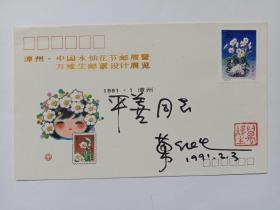 漳州·中国水仙花节邮展暨
万维生邮票设计展览
1991·1 漳州
平善同志
万维生
1991.2.3